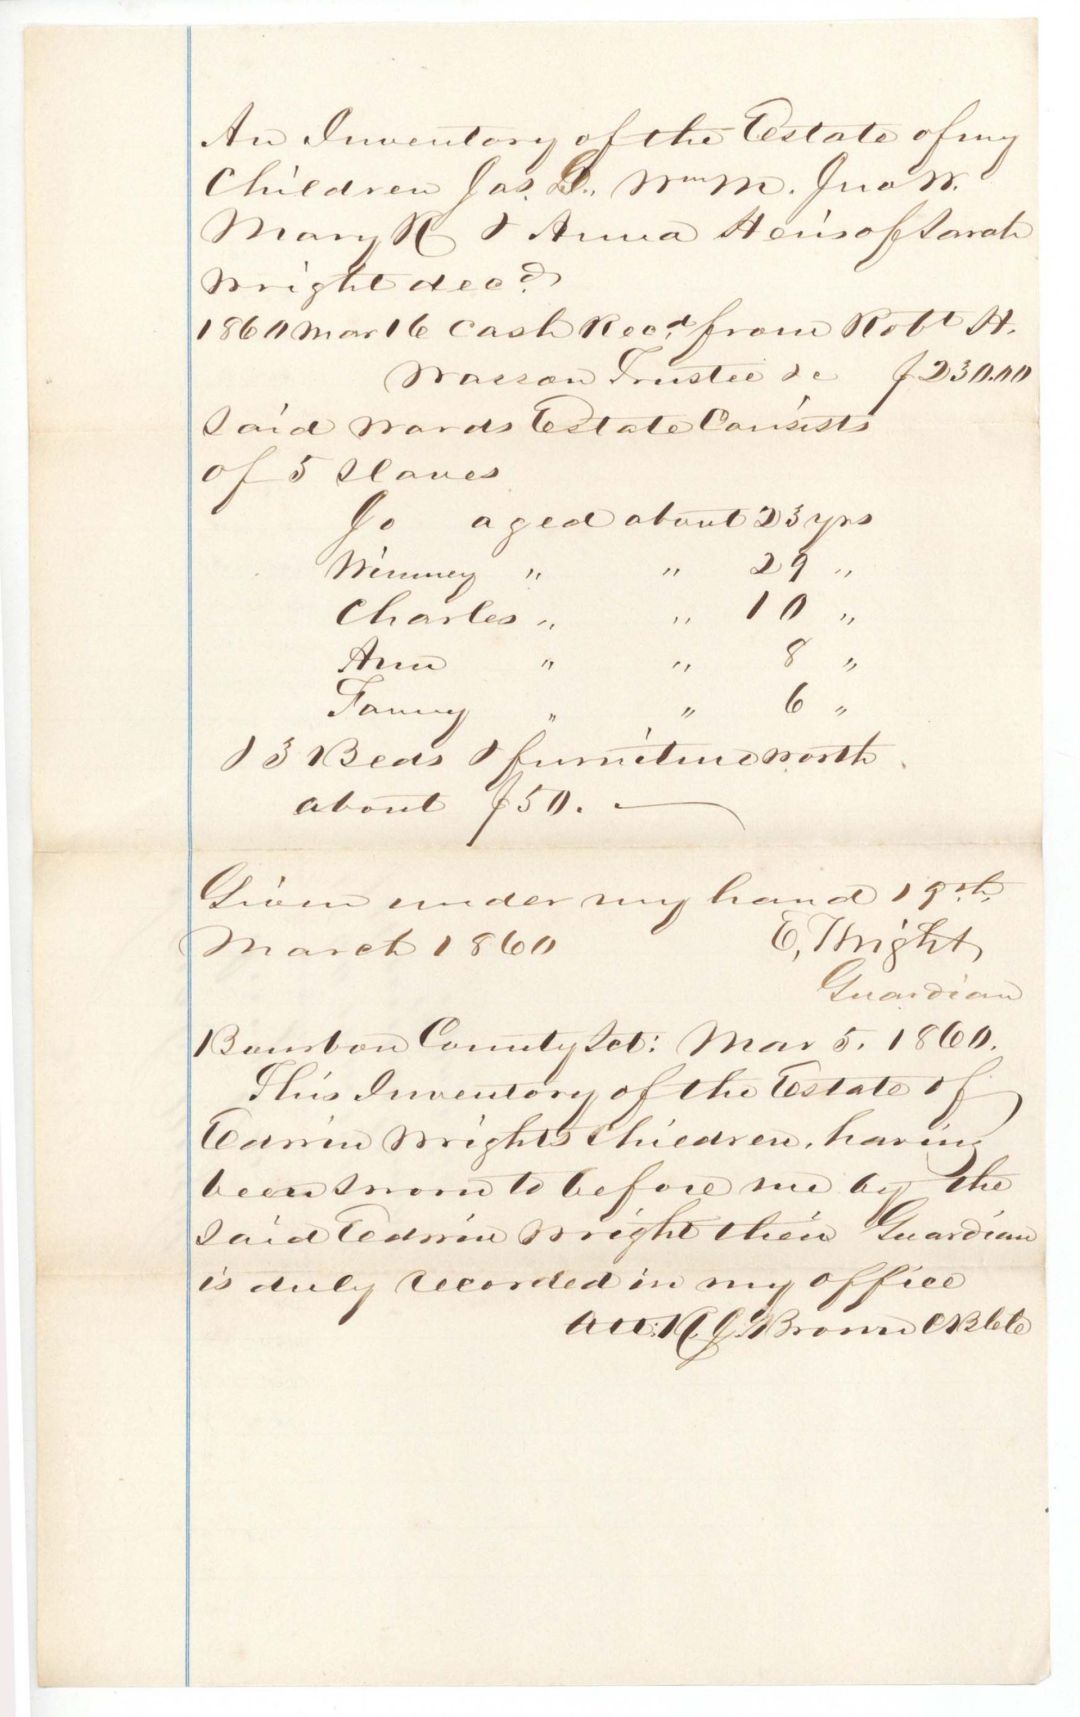 An Inventory of the Estate of my
Children Jas. D., Wm M. Jno W.
Mary R & Anna Heirs of Sarah
Wright decd.
1860 Mar 16 Cash Recd. from Robt H.
Wasson Trustee &c $230.00
Said wards Estate Consists
of 5 Slaves
Jo aged about 23 yrs
Winney " " 29 "
Charles " " 10 "
Ann " " 8 "
Fanny " " 6 "
& 3 Beds & furniture worth
about $50.
Given under my hand 19th.
March 1860 E, Wright
Guardian
Bourbon County Sct: Mar 5. 1860.
This Inventory of the Estate of
Edwin Wrights Children, having
been sworn to before me by the
said Edwin Wright their Guardian
is duly recorded in my office
Att: R. J. Brown CBCC